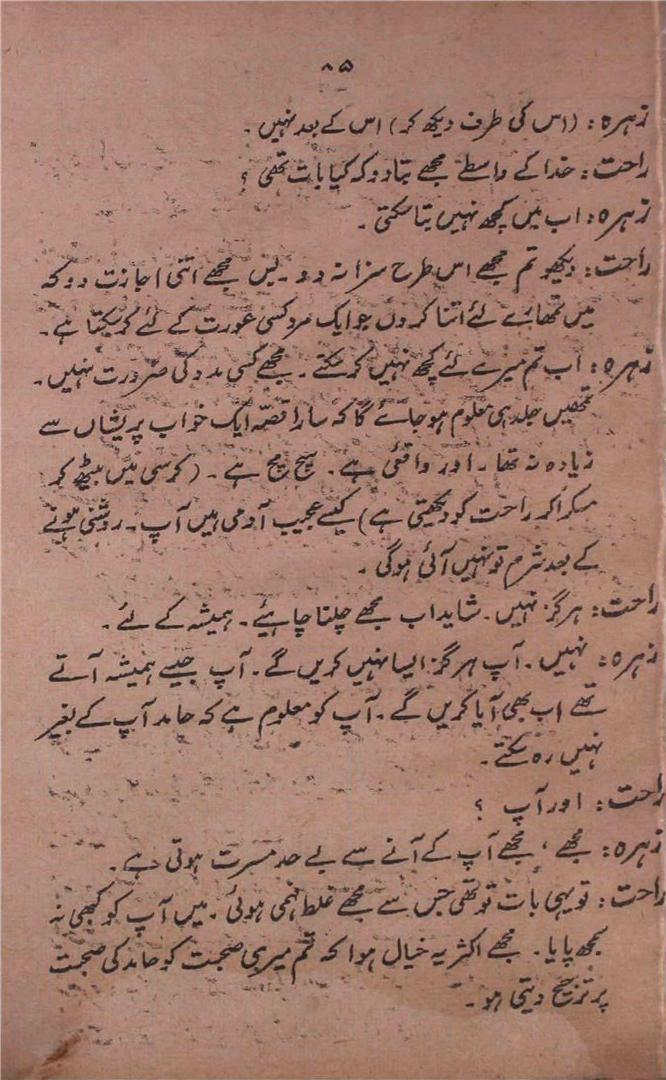 ۸۵
زہرہ: (اس کی طرف دیکھ کر) اس کے بعد نہیں۔
راحت: خدا کے واسطے مجھے بتا دو کہ کیا بات تھی ؟
زہرہ: اب میں کچھ نہیں بتا سکتی۔
راحت: دیکھو تم مجھے اس طرح سزا نہ دو۔ بس مجھے اتنی اجازت دو کہ
میں تمھارے لئے اتنا کر دوں جو ایک مرد کسی عورت کے لئے کر سکتا ہے۔
زہرہ: اب تم میرے لئے کچھ نہیں کر سکتے۔ مجھے کسی مدد کی ضرورت نہیں۔
تمھیں جلد ہی معلوم ہو جائے گا کہ سارا قصہ ایک خواب پریشاں سے
زیادہ نہ تھا۔ اور واقعی ہے۔ سچ مچ ہے۔ (کرسی میں بیٹھ کر
مسکرا کر راحت کو دیکھتی ہے) کیسے عجیب آدمی ہیں آپ۔ روشنی ہونے
کے بعد شرم تو نہیں آئی ہوگی۔
راحت: ہرگز نہیں۔ شاید اب مجھے چلنا چاہیئے۔ ہمیشہ کے لئے۔
زہرہ: نہیں۔ آپ ہرگز ایسا نہیں کریں گے۔ آپ جیسے ہمیشہ آتے
تھے اب بھی آیا کریں گے۔ آپ کو معلوم ہے کہ حامد آپ کے بغیر
نہیں رہ سکتے۔
راحت: اور آپ ؟
زہرہ: مجھے، مجھے آپ کے آنے سے بے حد مسرت ہوتی ہے۔
راحت: تو یہی بات تو تھی جس سے مجھے غلط فہمی ہوئی۔ میں آپ کو کبھی نہ
سمجھ پایا۔ مجھے اکثر یہ خیال ہوا کہ تم میری صحبت کو حامد کی صحبت
پر ترجیح دیتی ہو۔